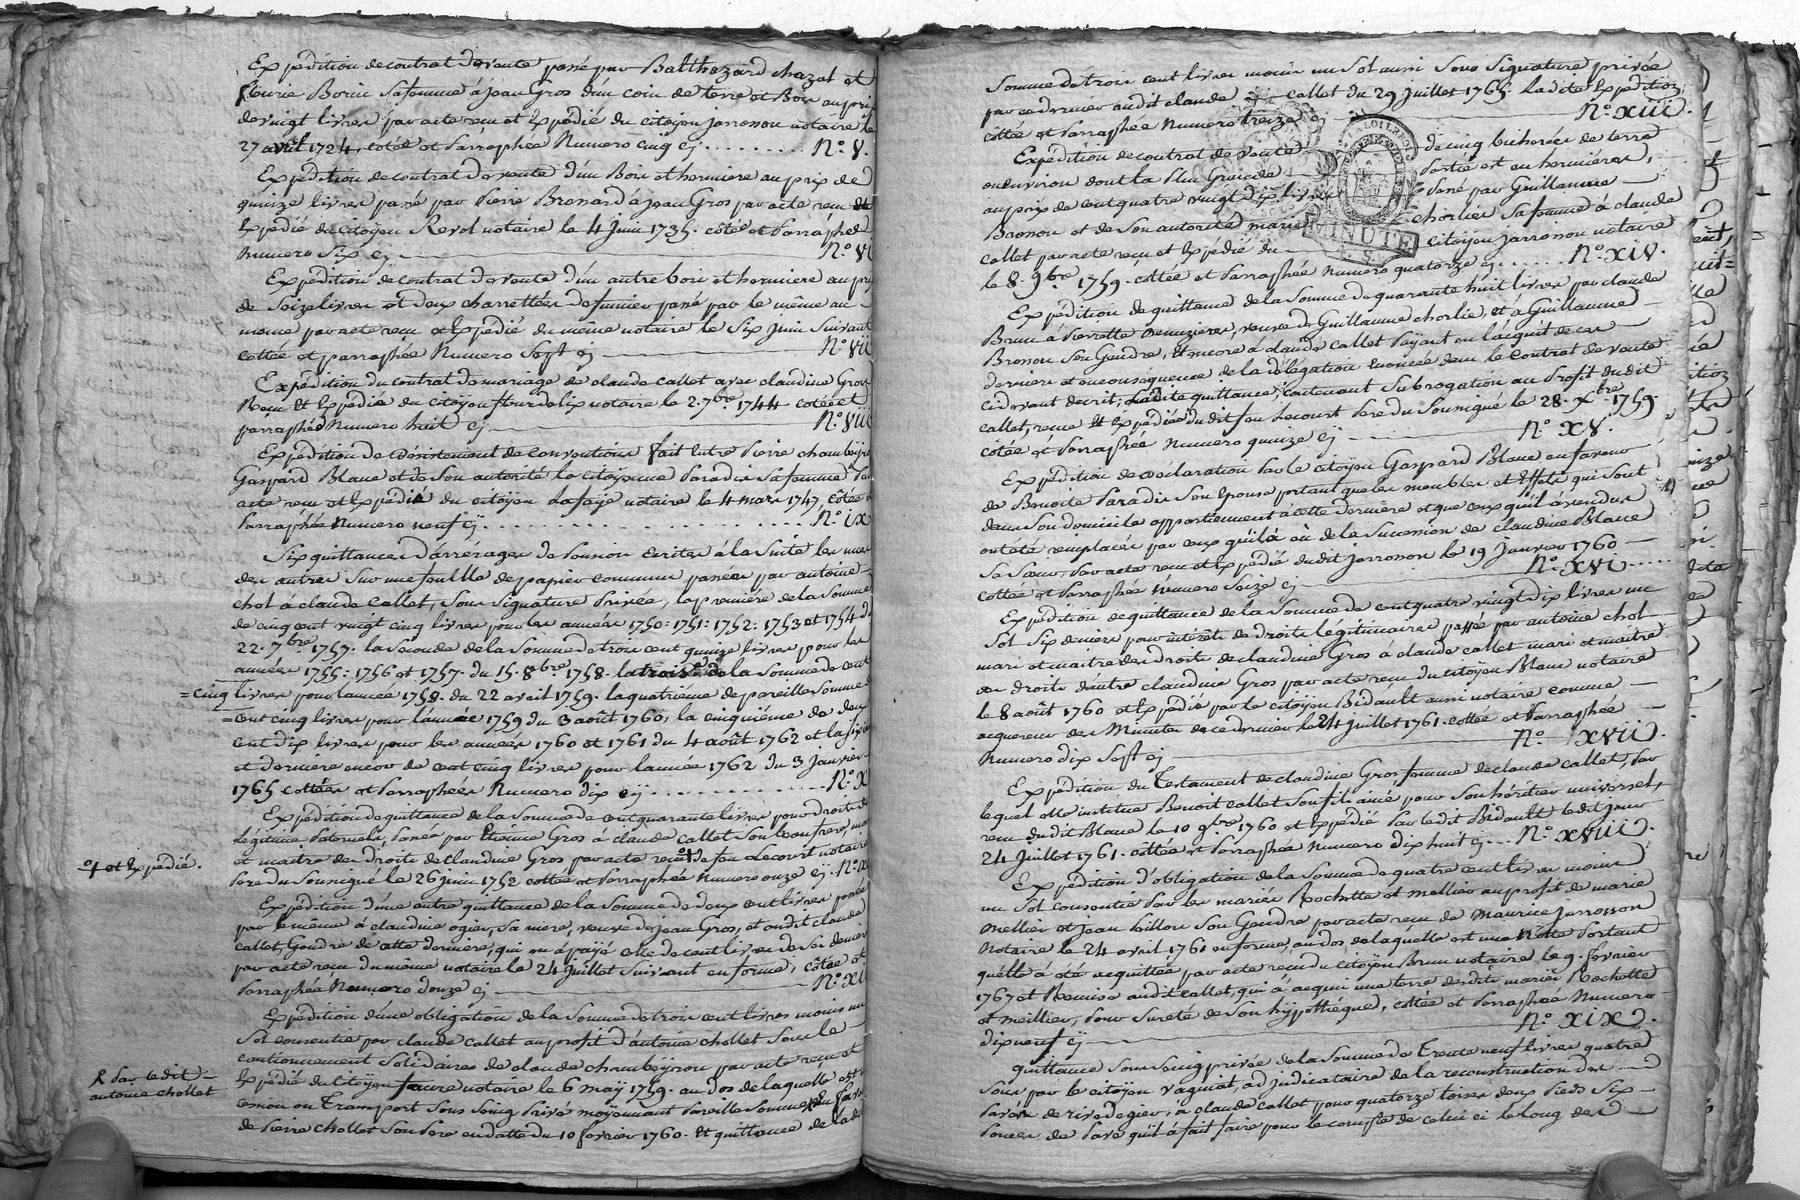 Expédition de contrat de vente passé par Balthazard chazot et
fleurie Borin sa femme à jean Gros d'un coin de terre et Bois au prix
de vingt livres par acte reçu et Expédié du citoyen jarrosson notaire le
27 avril 1724, cotée et Parraphée Numero cinq cy ......... N.° V.
Expédition de contrat de vente d'un Bois et hermiere au prix de
quinze livres passé par Pierre Bronard à jean Gros par acte reçu et
Expédié du citoyen Revol notaire le 4 juin 1735. cotée et Parraphée
Numero Six cy — N.° VI
Expédition de contrat de vente d'un autre bois et hermiere au prix
de Seize livres et deux charrettées de fumier passé par le même au
même par acte reçu et Expédié du même notaire le Six juin suivant
cottée et parraphée Numero Sept cy — N.° VII
Expédition du contrat de mariage de claude callet avec claudine Gros
Reçu et Expédié du citoyen flourdelix notaire le 2 7bre 1744 cotée et
parraphée Numero huit cy — N.° VIII
Expédition de désistement de conventions fait entre Pierre chambeyron
Gaspard Blanc et de son autorité la citoyenne Paradis sa femme Par
acte reçu et Expédié du citoyen Lafaye notaire le 4 mars 1747 cotée et
Parraphée Numero neuf cy ......... N.° IX
Six quittances d'arrérages de Pension Ecrites à la Suite les unes
des autres sur une feuille de papier commun passées par antoine
chol à claude callet, sous signature Privée, la premiére de la Somme
de cinq cent vingt cinq livres pour les années 1750: 1751: 1752: 1753 et 1754 du
22. 7bre 1757. la seconde de la Somme de trois cent quinze livres pour les
années 1755: 1756 et 1757. du 15. 8bre 1758. la troise de la Somme de cent
= cinq livres pour l'année 1758. du 22 avril 1759. la quatrième de pareille Somme de
= cent cinq livres pour l'année 1759 du 3 août 1760, la cinquiéme de deux
cent dix livres pour les années 1760 et 1761 du 4 août 1762 et la sixieme
et derniere encor de cent cinq livres pour l'année 1762 du 3 janvier
1765 cottées et Parraphées Numero dix cy ......... N.° X
Expédition de quittance de la Somme de cent quarante livres pour droits de
légitime Paternels, Passée par Etienne Gros à claude callet Son beau frere, mari
et maitre des droits de claudine Gros par acte reçu de feu Lecourt notaire
⸸ et Expédié.
Pere du Sousigné le 26 juin 1752 cottée et Parraphée Numero onze cy. N.° XI
Expédition d'une autre quittance de la Somme de deux cent livres passée
par le même à claudine ogier, sa mere, veuve de jean Gros, et audit claude
callet, Gendre de cette derniere, qui en à payé celle de cent livres de ses deniers
par acte reçu du même notaire le 24 juillet Suivant en forme, côtée et
Parraphée Numero douze cy — N.° XII
Expédition d'une obligation de la Somme de trois cent livres moins un
Sol consentie par claude callet au profit d'antoine chollet Sous le
cautionnement Solidaires de claude chambeyron par acte reçu et
Expédié du citoyen faure notaire le 6 may 1759. au dos de laquelle est
& par ledit
antoine chollet
cession ou transport Sous Seing Privé moyennant Pareille Somme en faveur
de Pierre chollet Son Pere en datte du 10 fevrier 1760. Et quittance de ladite
Somme de trois cent livres moins un Sol aussi Sous Signature privée
par ce dernier audit claude callet du 29 juillet 1765. Ladite Expédition
côttée et Parraphée Numero treize cy N.° XIII.
Expédition de contrat de vente de cinq bicherées de terre
ou environ dont la Plus Grande Partie est en hermiéres,
au prix de cent quatre vingt dix livres Passé par Guillaume
Bronon et de Son autorité marie chorlier Sa femme à claude
callet par acte reçu et Expédié du citoyen jarrosson notaire
le 8. 9bre 1759. côttée et Parraphée numero quatorze cy ...... N.° XIV.
MINUTE
Expédition de quittance de la Somme de quarante huit livres par claude
Brun à Pierrette Demeziéres, veuve de Guillaume chorlie, et à Guillaume
Bronon Son Gendre, et encore à claude callet Payant en l'acquit de ces
derniers et en conséquence de la délégation énoncée dans le contrat de vente
cidevant decrit, ladite quittance, contenant Subrogation au Profit dudit
callet, reçue Et Expédiée dudit feu Lecourt Pere du Sousigné le 28. Xbre 1759.
côtée et Parraphée Numero quinze cy — N.° XV.
Expédition de déclaration Par le citoyen Gaspard Blanc en faveur
de Benoite Paradis Son Epouse portant que les meubles et Effets qui Sont
dans Son domicile appartiennent à cette derniere et que ceux qu'il à vendus
ont été remplacés par ceux qu'il à eü de la Succession de claudine Blanc
Sa Sœur, Par acte reçu et Expédié dudit jarrosson le 19 janvier 1760
côttée et Parraphée Numero Seize cy — N.° XVI .....
Expédition de quittance de la Somme de cent quatre vingt dix livres un
Sol Six deniers pour interêts de droits légitimaires passée par antoine chol
mari et maitre des droits de claudine Gros à claude callet mari et maitre
des droits d'autre claudine Gros par acte reçu du citoyen Blanc notaire
le 8 août 1760 et Expédié par le citoyen Bidault aussi notaire comme
acquereur des Minutes de ce dernier le 24 juillet 1761. cottée et Parraphée
Numero dix Sept cy — N.° XVII.
Expédition du Testament de claudine Gros femme de claude callet, Par
lequel elle institue Benoit callet Son fils ainé pour Son héritier universel,
reçu dudit Blanc le 10 9bre 1760 et Expédié Par ledit Bidault ledit jour
24 juillet 1761. côttée et Parraphée Numero dix huit cy ... N.° XVIII.
Expédition d'obligation de la Somme de quatre cent livres moins
un Sol consentie Par les mariés Rochette et mellier au profit de marie
mellier et jean Pillon Son Gendre par acte reçu de Maurice jarrosson
Notaire le 24 avril 1761 en forme, au dos de laquelle est une Notte Portant
qu'elle à été acquittée par acte reçu du citoyen Brun notaire le 9. fevrier
1767 et Remise audit callet, qui à acquis une terre desdits mariés Rochette
et meillier, Pour Sureté de Son hypothéque, cottée et Parraphée Numero
dix neuf cy — N.° XIX.
quittance Sous Seing privée de la Somme de Trente neuf livres quatre
Sous par le citoyen vaguiat, adjudicataire de la reconstruction des
Pavés de rive de gier, à claude callet pour quatorze toises deux Pieds Six
Pouces de Pavé qu'il à fait faire pour le compte de celui ci le long des